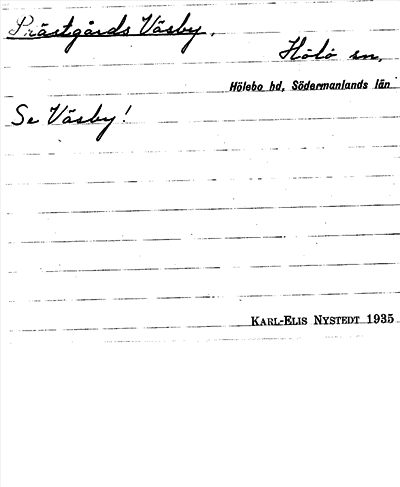 Prästgårds Väsby.
Hölö sn,
Hölebo hd, Södermanlands län
Se Väsby!
KARL-ELIS NYSTEDT 1935